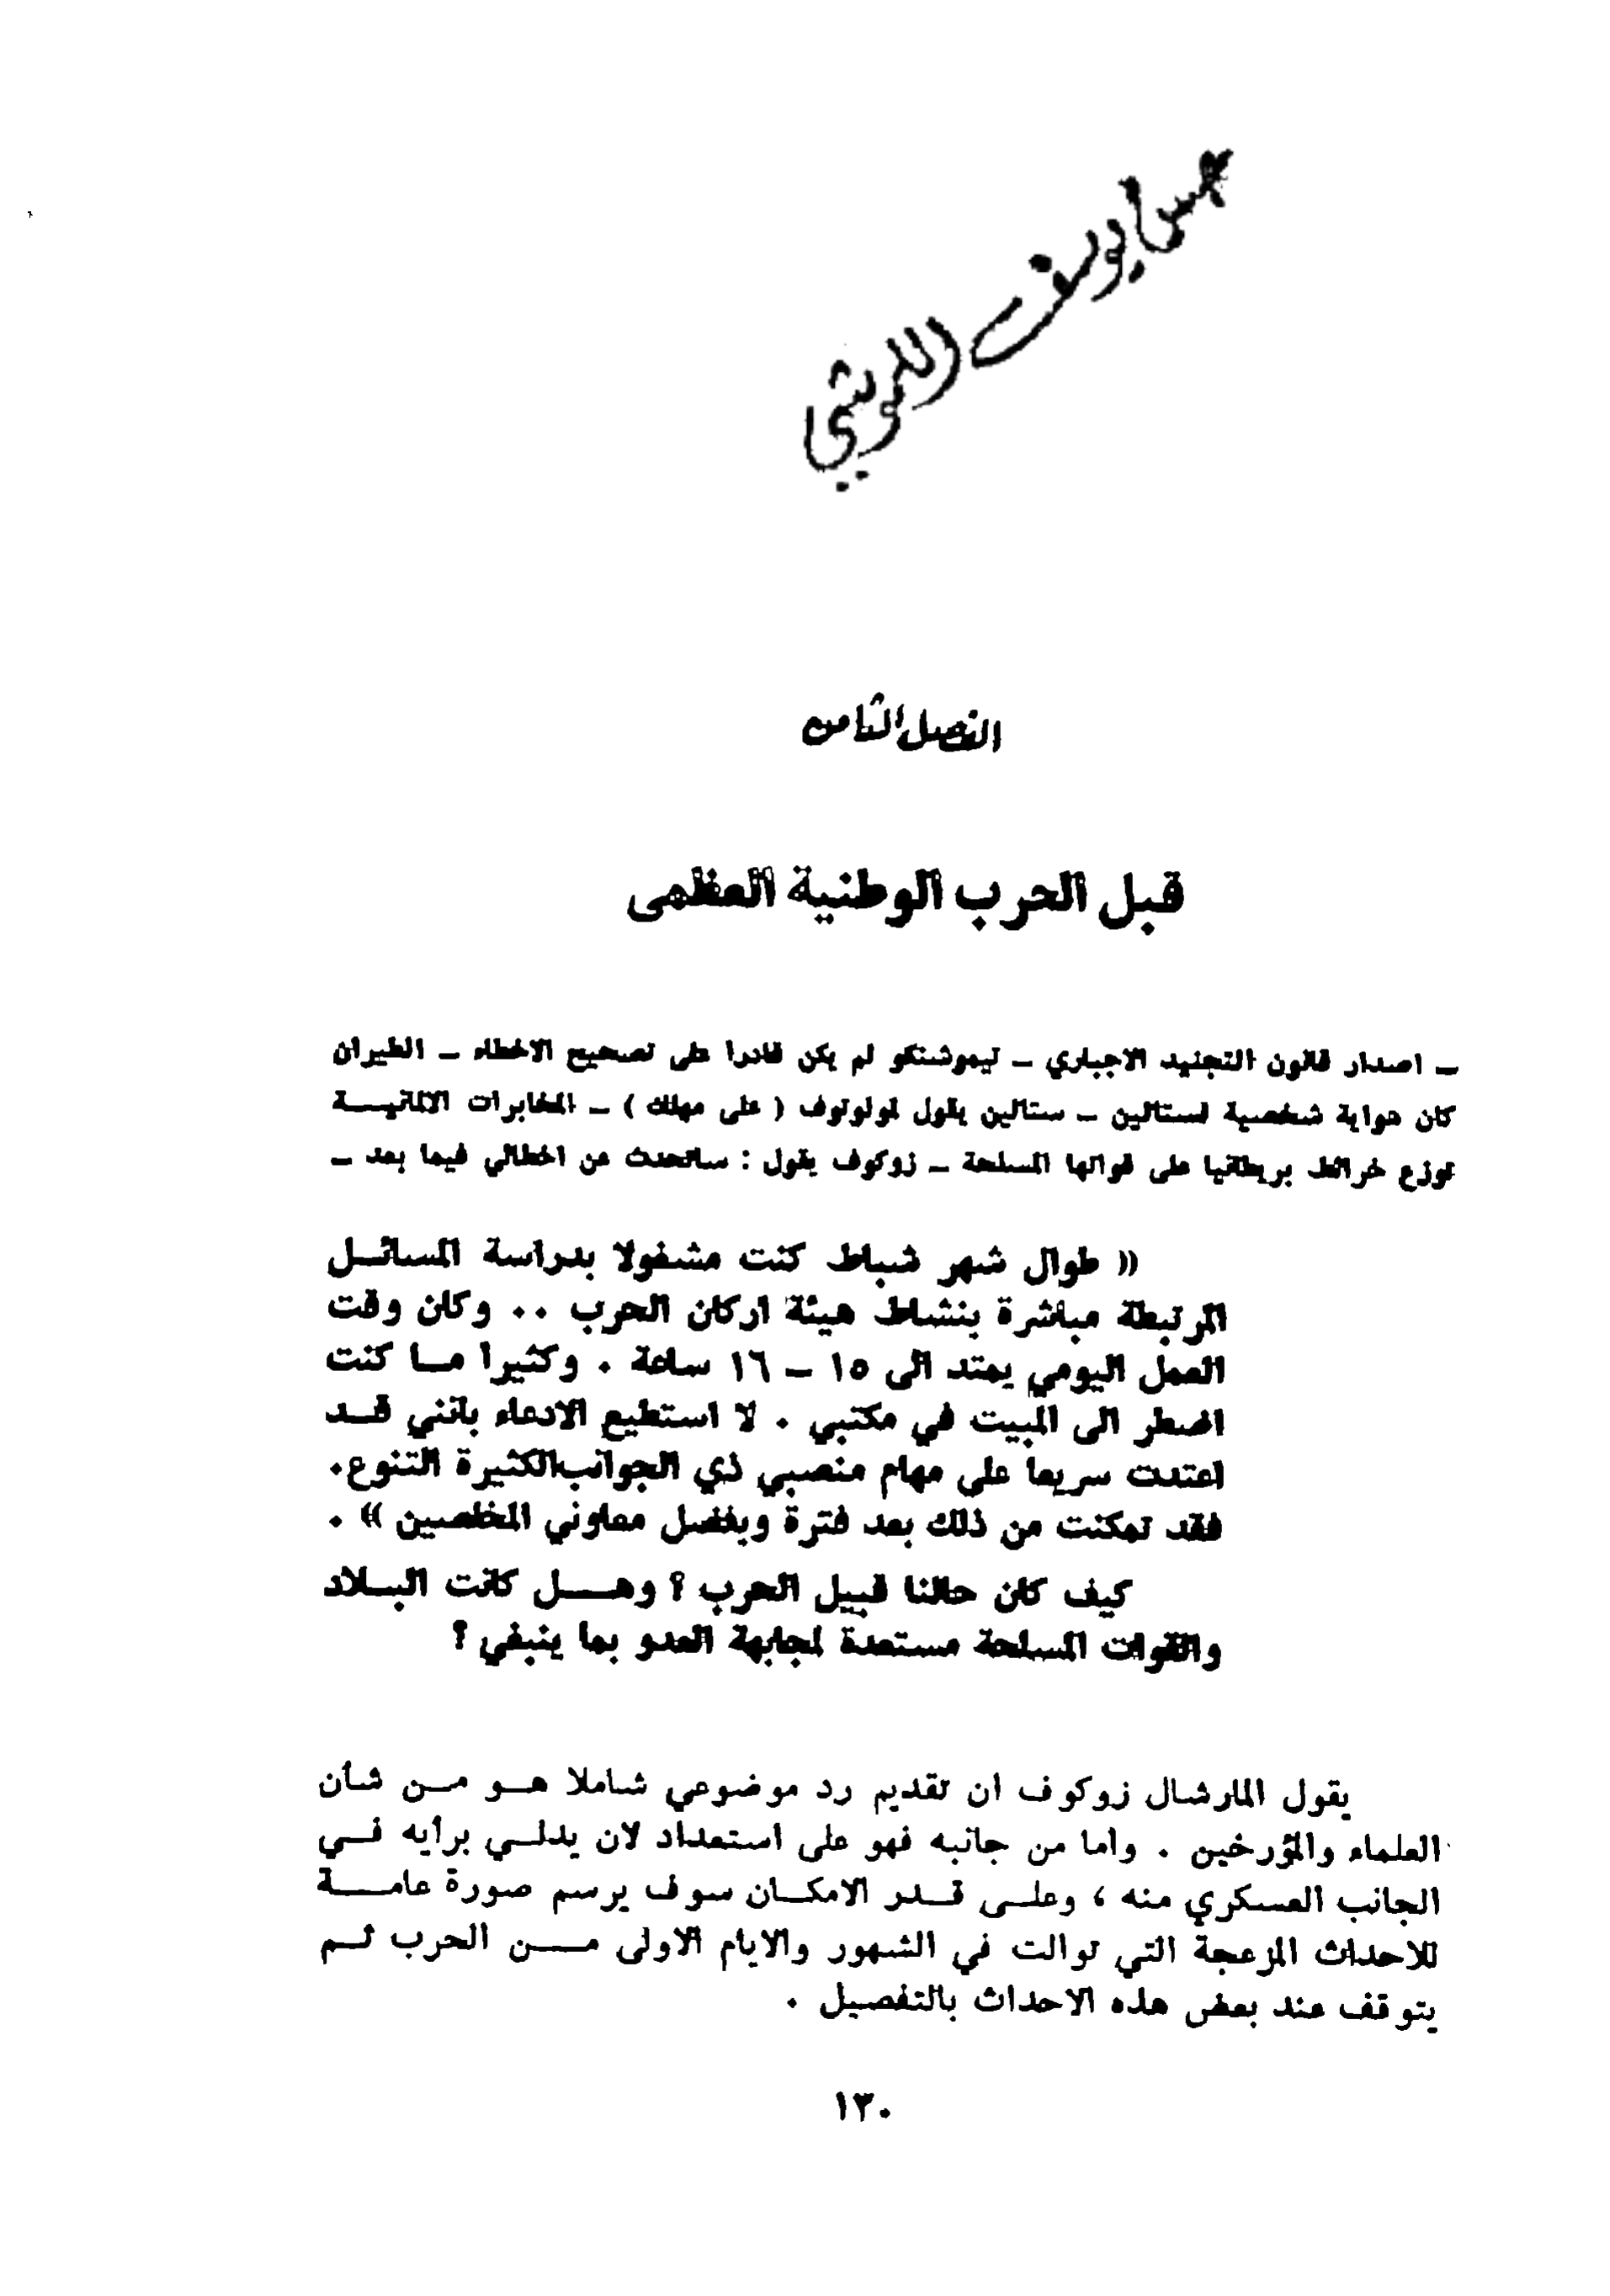 يوسف
الفصل الثامن
قبل الحرب الوطنية العظمى
ـ اصدار قانون التجنيد الاجباري ـ تيموشنكو لم يكن قادرا على تصحيح الاخطاء ـ الطيران
كان هواية شخصية لستالين ـ ستالين يقول لمولوتوف ( على مهلك ) ـ المخابرات الالمانيـــة
توزع خرائط بريطانيا على قواتها المسلحة ـ زوكوف يقول : ساتحدث عن اخطائي فيما بعد ـ
« طوال شهر شباط كنت مشغولا بدراسة المسائــل
المرتبطة مباشرة بنشاط هيئة اركان الحرب .. وكان وقت
العمل اليومي يمتد الى ١٥ ـ ١٦ ساعة . وكثيرا مــا كنت
اضطر الى المبيت في مكتبي . لا استطيع الادعاء بانني قــد
اعتدت سريعا على مهام منصبي ذي الجوانب الكثيرة التنوع.
فقد تمكنت من ذلك بعد فترة وبفضل معاوني المخلصين » .
كيف كان حالنا قبيل الحرب ؟ وهــــل كانت البــلاد
والقوات المسلحة مستعدة لمجابهة العدو بما ينبغي ؟
يقول المارشال زوكوف ان تقديم رد موضوعي شاملا هــو مــن شأن
العلماء والمؤرخين . واما من جانبه فهو على استعداد لان يدلــي برأيه فــي
الجانب العسكري منه ، وعلــى قــدر الامكــان سوف يرسم صورة عامــــة
للاحداث المزعجة التي توالت في الشهور والايام الاولى مــــن الحرب ثــم
يتوقف عند بعض هذه الاحداث بالتفصيل .
١٣٠